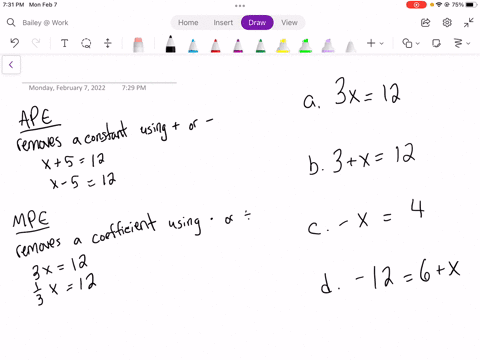 7:31 PM Mon Feb 7
75%
Bailey @ Work
Home Insert Draw View
Monday, February 7, 2022 7:29 PM
APE
removes a constant using + or -
x + 5 = 12
x - 5 = 12
MPE
removes a coefficient using · or ÷
3x = 12
1/3 x = 12
a. 3x = 12
b. 3 + x = 12
c. - x = 4
d. - 12 = 6 + x